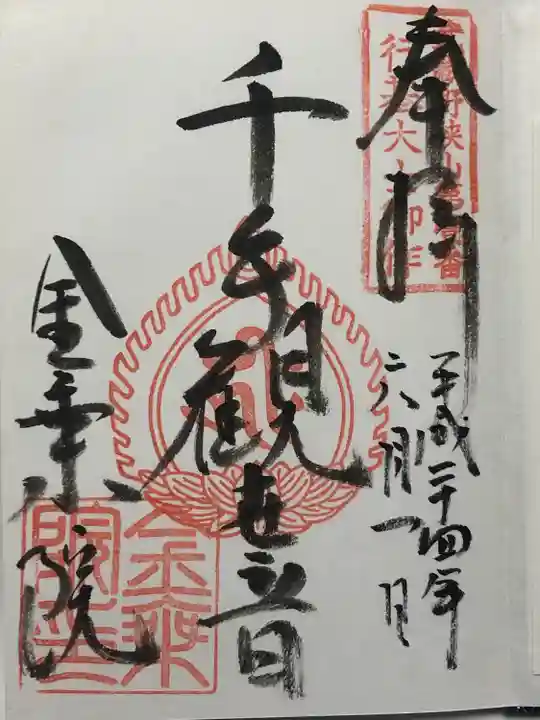 奉拝
野狭山第
行基大
平成二十四年
六月一日
千手観世音
金乗院
金乗
院